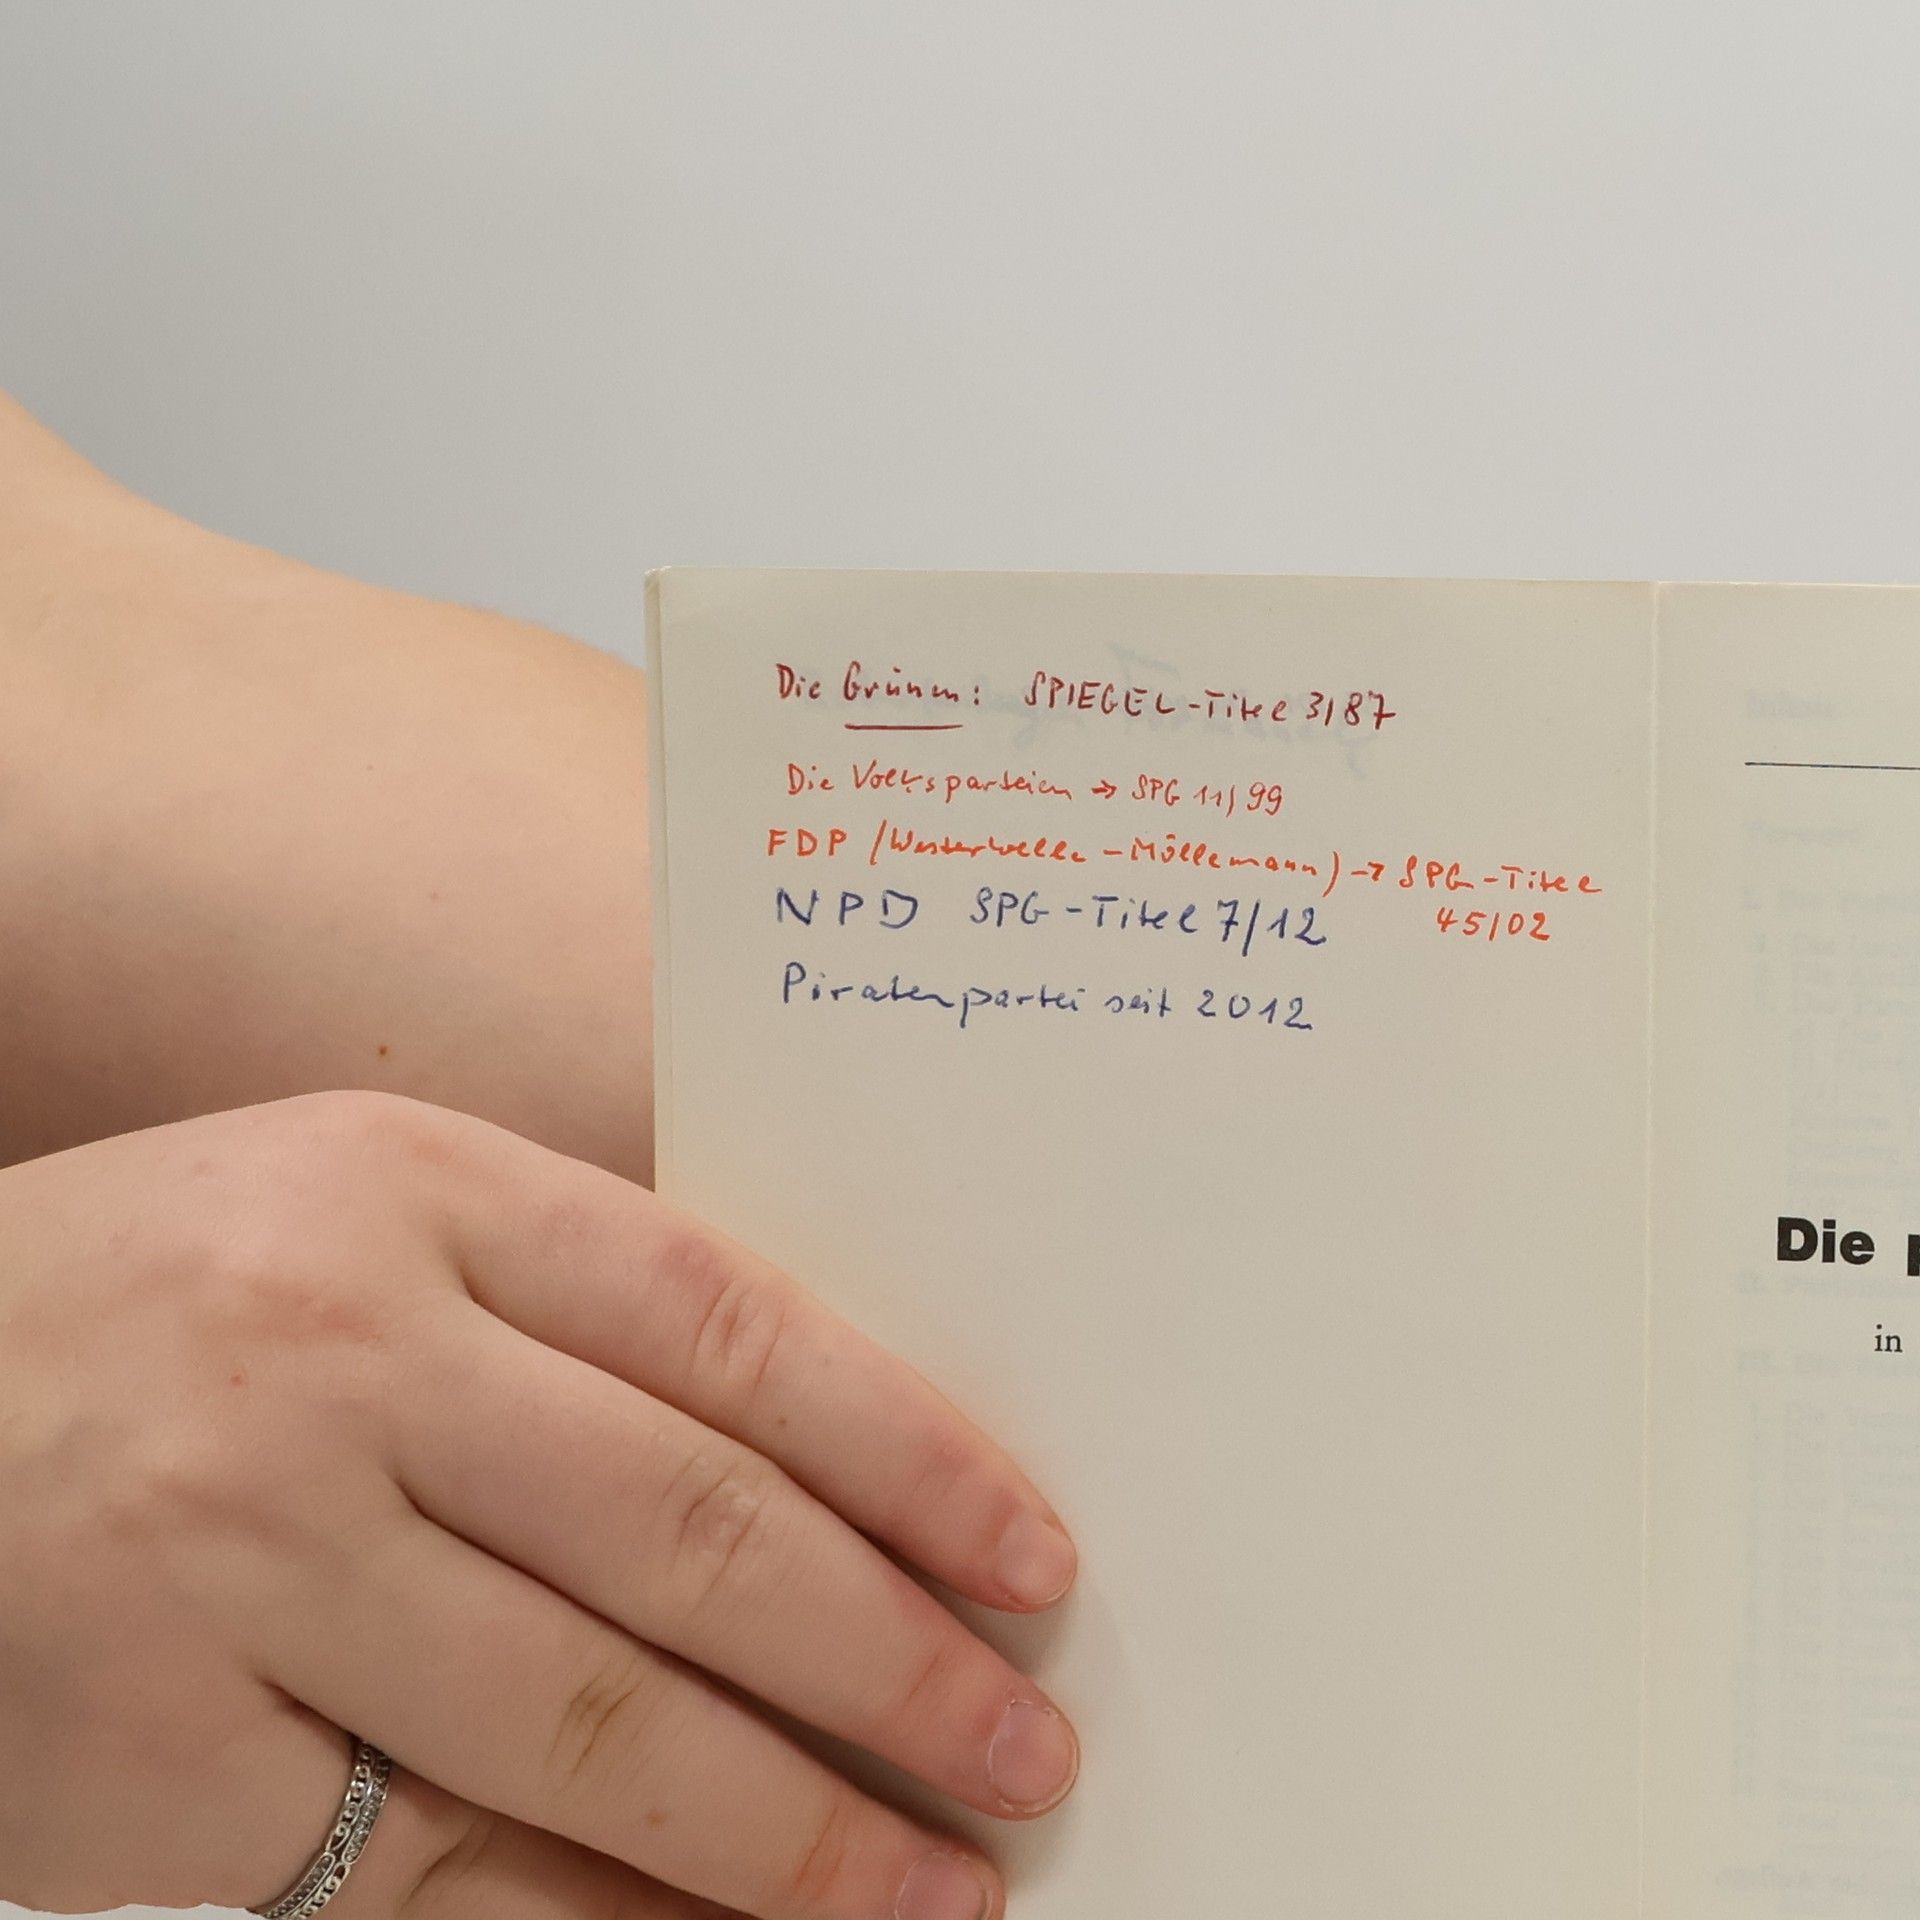 Die Grünen: SPIEGEL-Titel 3/87
Die Volksparteien → SPG 11/99
FDP (Westerwelle - Möllemann) → SPG-Titel
45/02
NPD SPG-Titel 7/12
Piratenpartei seit 2012
Die
in